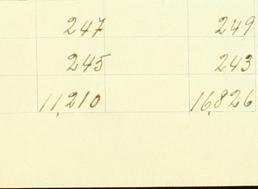 247 249
245 243
11,210 16,826